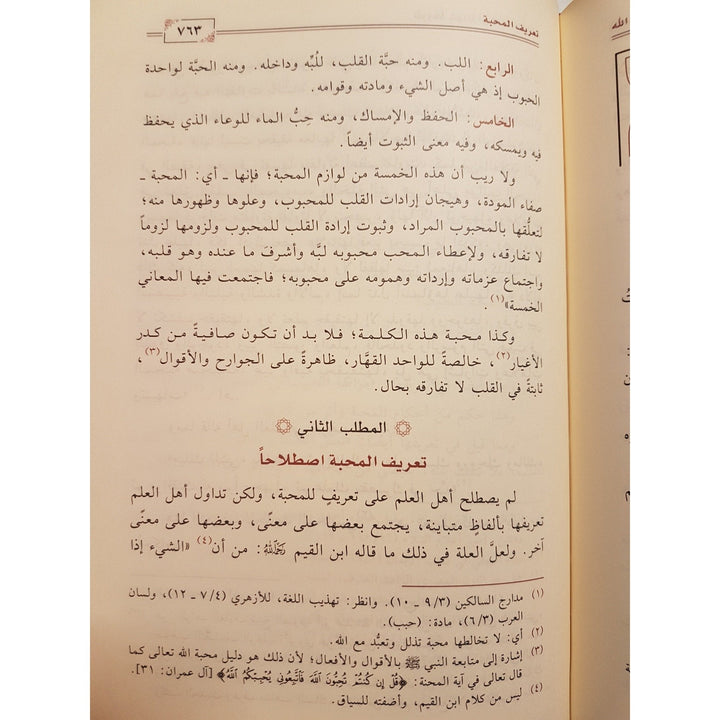 تعريف المحبة
٧٦٣
الرابع: اللب. ومنه حبَّة القلب، للُبِّه وداخله. ومنه الحبَّة لواحدة
الحبوب إذ هي أصل الشيء ومادته وقوامه.
الخامس: الحفظ والإمساك، ومنه حِبُّ الماء للوعاء الذي يحفظ
فيه ويمسكه، وفيه معنى الثبوت أيضاً.
ولا ريب أن هذه الخمسة من لوازم المحبة؛ فإنها ـ أي: المحبة ـ
صفاء المودة، وهيجان إرادات القلب للمحبوب، وعلوها وظهورها منه؛
لتعلُّقها بالمحبوب المراد، وثبوت إرادة القلب للمحبوب ولزومها لزوماً
لا تفارقه، ولإعطاء المحب محبوبه لبَّه وأشرفَ ما عنده وهو قلبه،
واجتماع عزماته وإرداته وهمومه على محبوبه؛ فاجتمعت فيها المعاني
الخمسة»(١).
وكذا محبة هذه الكلمة؛ فلا بد أن تكون صافيةً من كدر
الأغيار(٢)، خالصةً للواحد القهَّار، ظاهرةً على الجوارح والأقوال(٣)،
ثابتةً في القلب لا تفارقه بحال.
المطلب الثاني
تعريف المحبة اصطلاحاً
لم يصطلح أهل العلم على تعريفٍ للمحبة، ولكن تداول أهل العلم
تعريفها بألفاظٍ متباينة، يجتمع بعضها على معنًى، وبعضها على معنًى
آخر. ولعلَّ العلة في ذلك ما قاله ابن القيم رحمه الله: من أن(٤) «الشيء إذا
(١) مدارج السالكين (٩/٣ ـ ١٠). وانظر: تهذيب اللغة، للأزهري (٧/٤ ـ ١٢)، ولسان
العرب (٦/٣)، مادة: (حبب).
(٢) أي: لا تخالطها محبة تذلل وتعبُّد مع الله.
(٣) إشارة إلى متابعة النبي ﷺ بالأقوال والأفعال؛ لأن ذلك هو دليل محبة الله تعالى كما
قال تعالى في آية المحنة: ﴿قُلْ إِن كُنتُمْ تُحِبُّونَ اللَّهَ فَاتَّبِعُونِي يُحْبِبْكُمُ اللَّهُ﴾ [آل عمران: ٣١].
(٤) ليس من كلام ابن القيم، وأضفته للسياق.